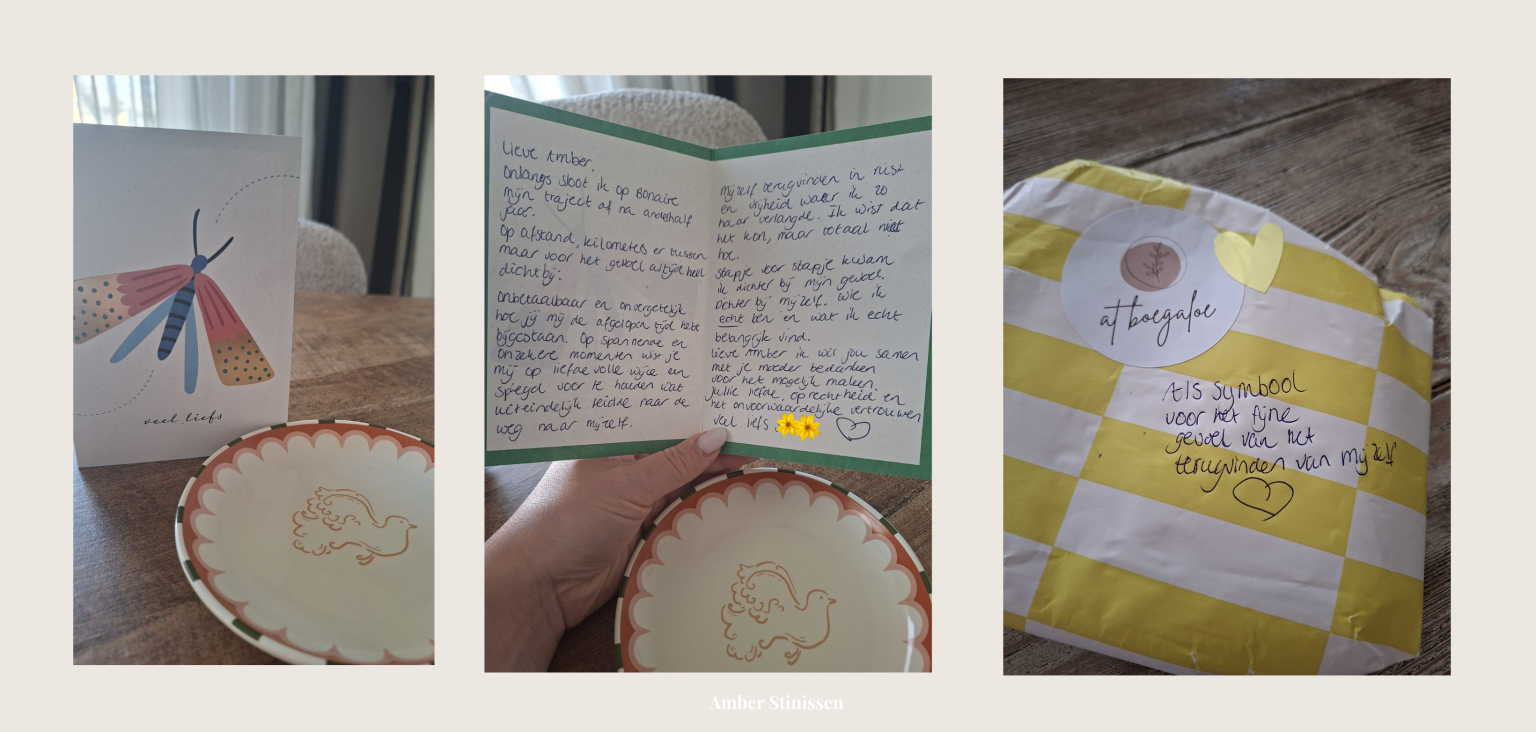 veel liefs
Lieve Amber,
Onlangs sloot ik op Bonaire
mijn traject af na anderhalf
jaar.
Op afstand, kilometers er tussen
maar voor het gevoel altijd heel
dichtbij.
Onbetaalbaar en onvergetelijk
hoe jij mij de afgelopen tijd hebt
bijgestaan. Op spannende en
onzekere momenten wist je
mij op liefdevolle wijze een
spiegel voor te houden wat
uiteindelijk leidde naar de
weg naar mijzelf.
Mijzelf terugvinden in rust
en vrijheid waar ik zo
naar verlangde. Ik wist dat
het kon, maar totaal niet
hoe.
Stapje voor stapje kwam
ik dichter bij mijn gevoel.
Dichter bij mijzelf. Wie ik
echt ben en wat ik echt
belangrijk vind.
Lieve Amber ik wil jou samen
met je moeder bedanken
voor het mogelijk maken.
Jullie liefde, oprechtheid en
het onvoorwaardelijke vertrouwen
Veel liefs
at boegaloe
Als symbool
voor het fijne
gevoel van het
terugvinden van mijzelf
Amber Stinissen